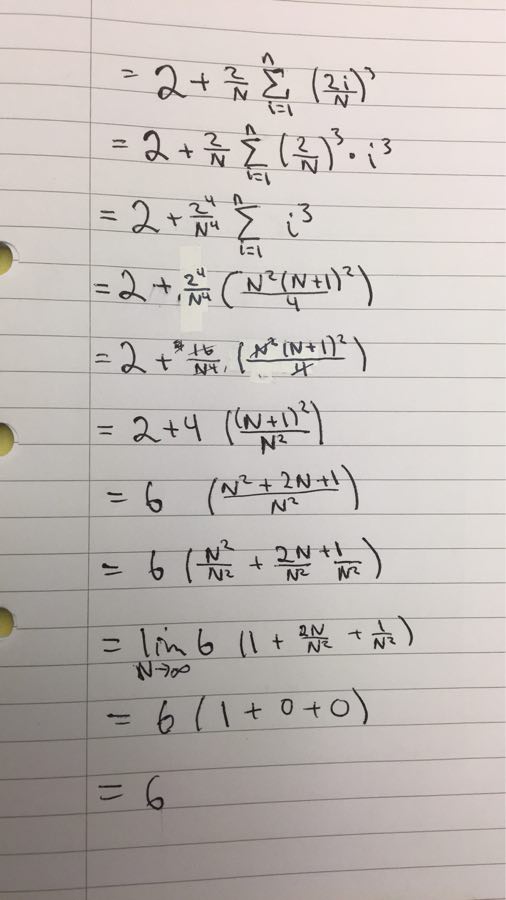 = 2 + 2/N Σ_{i=1}^{n} (2i/N)^3
= 2 + 2/N Σ_{i=1}^{n} (2/N)^3 · i^3
= 2 + 2^4/N^4 Σ_{i=1}^{n} i^3
= 2 + 2^4/N^4 (N^2(N+1)^2/4)
= 2 + 4 16/N^4 (N^2(N+1)^2/4)
= 2 + 4 ((N+1)^2/N^2)
= 6 (N^2 + 2N + 1/N^2)
= 6 (N^2/N^2 + 2N/N^2 + 1/N^2)
= lim_{N→∞} 6 (1 + 2N/N^2 + 1/N^2)
= 6 (1 + 0 + 0)
= 6